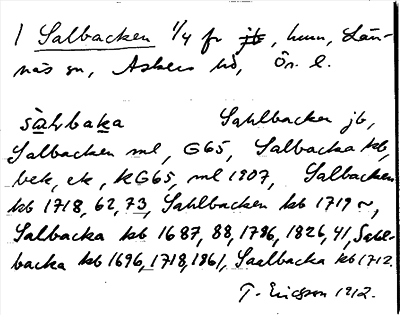 1 Salbacken 1/4 fr jb, hmn, Län-
näs sn, Askers hd, Ör. l.
sàlvbaka Sahlbacken jb,
Salbacken ml, G65, Salbacka kb,
bek, ek, KG65, ml 1907, Salbacken
kb 1718, 62, 73, Sahlbacken kb 1719 ~,
Salbacka kb 1687, 88, 1786, 1826, 41, Sahl-
backa kb 1696, 1718, 1861, Saalbacka kb 1712.
T. Ericsson 1912.